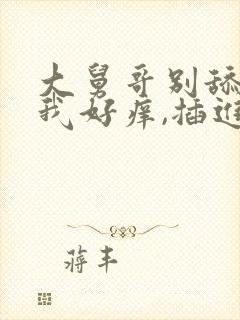 大舅哥别舔
我好痒,插进
蒋丰